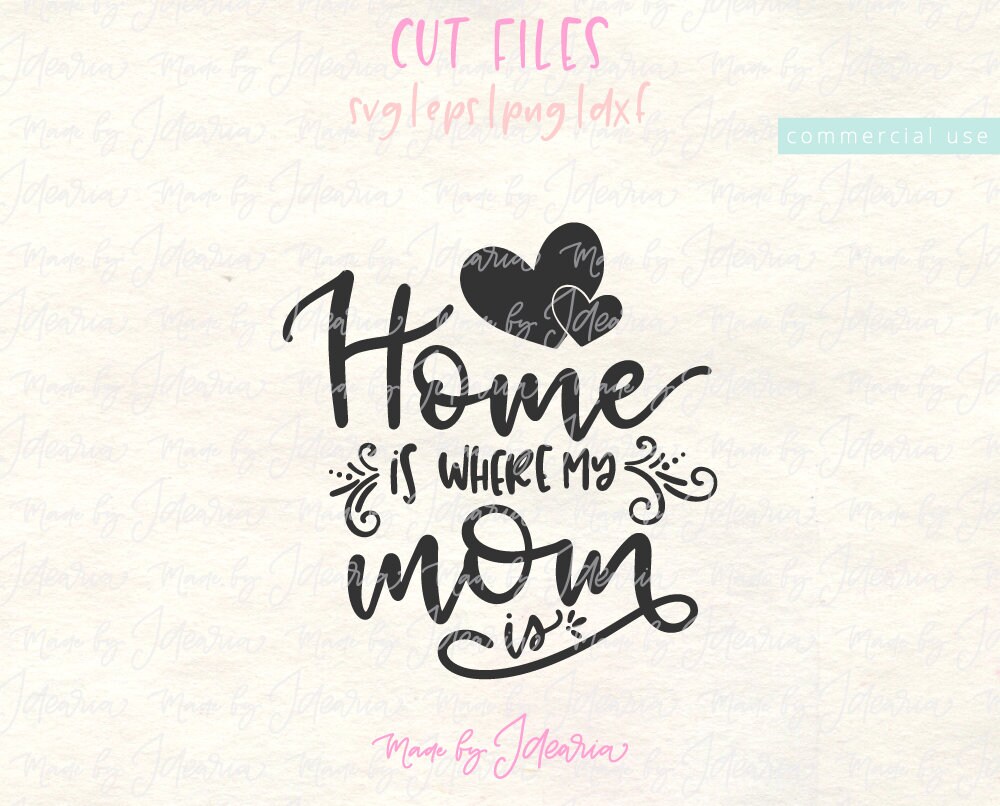 CUT FILES
svg|eps|png|dxf
commercial use
Home
is WHERE MY
mom
is
Made by Idearia